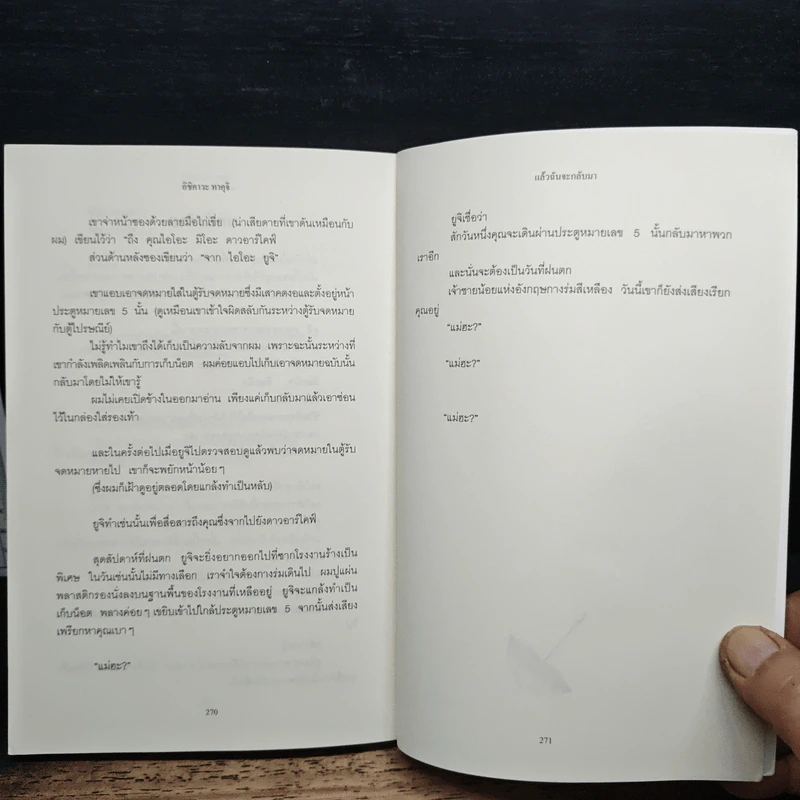 อิชิคาวะ ทาคุจิ
เขาจ่าหน้าซองด้วยลายมือไก่เขี่ย (น่าเสียดายที่เขาดันเหมือนกับ
ผม) เขียนไว้ว่า "ถึง คุณไอโอะ มิโอะ ดาวอาร์ไคฟ์
ส่วนด้านหลังซองเขียนว่า "จาก ไอโอะ ยูจิ"
เขาแอบเอาจดหมายใส่ในตู้รับจดหมายซึ่งมีเสาคดงอและตั้งอยู่หน้า
ประตูหมายเลข 5 นั้น (ดูเหมือนเขาเข้าใจผิดสลับกันระหว่างตู้รับจดหมาย
กับตู้ไปรษณีย์)
ไม่รู้ทำไมเขาถึงได้เก็บเป็นความลับจากผม เพราะฉะนั้นระหว่างที่
เขากำลังเพลิดเพลินกับการเก็บน็อต ผมค่อยแอบไปเก็บเอาจดหมายฉบับนั้น
กลับมาโดยไม่ให้เขารู้
ผมไม่เคยเปิดข้างในออกมาอ่าน เพียงแค่เก็บกลับมาแล้วเอาซ่อน
ไว้ในกล่องใส่รองเท้า
และในครั้งต่อไปเมื่อยูจิไปตรวจสอบดูแล้วพบว่าจดหมายในตู้รับ
จดหมายหายไป เขาก็จะพยักหน้าน้อยๆ
(ซึ่งผมก็เฝ้าดูอยู่ตลอดโดยแกล้งทำเป็นหลับ)
ยูจิทำเช่นนั้นเพื่อสื่อสารถึงคุณซึ่งจากไปยังดาวอาร์ไคฟ์
สุดสัปดาห์ที่ฝนตก ยูจิจะยิ่งอยากออกไปที่ซากโรงงานร้างเป็น
พิเศษ ในวันเช่นนั้นไม่มีทางเลือก เราจำใจต้องกางร่มเดินไป ผมปูแผ่น
พลาสติกรองนั่งลงบนฐานพื้นของโรงงานที่เหลืออยู่ ยูจิจะแกล้งทำเป็น
เก็บน็อต พลางค่อยๆ เขยิบเข้าไปใกล้ประตูหมายเลข 5 จากนั้นส่งเสียง
เพรียกหาคุณเบาๆ
"แม่ฮะ?"
270
แล้วฉันจะกลับมา
ยูจิเชื่อว่า
สักวันหนึ่งคุณจะเดินผ่านประตูหมายเลข 5 นั้นกลับมาหาพวก
เราอีก
และนั่นจะต้องเป็นวันที่ฝนตก
เจ้าชายน้อยแห่งอังกฤษกางร่มสีเหลือง วันนี้เขาก็ยังส่งเสียงเรียก
คุณอยู่
"แม่ฮะ?"
"แม่ฮะ?"
"แม่ฮะ?"
271